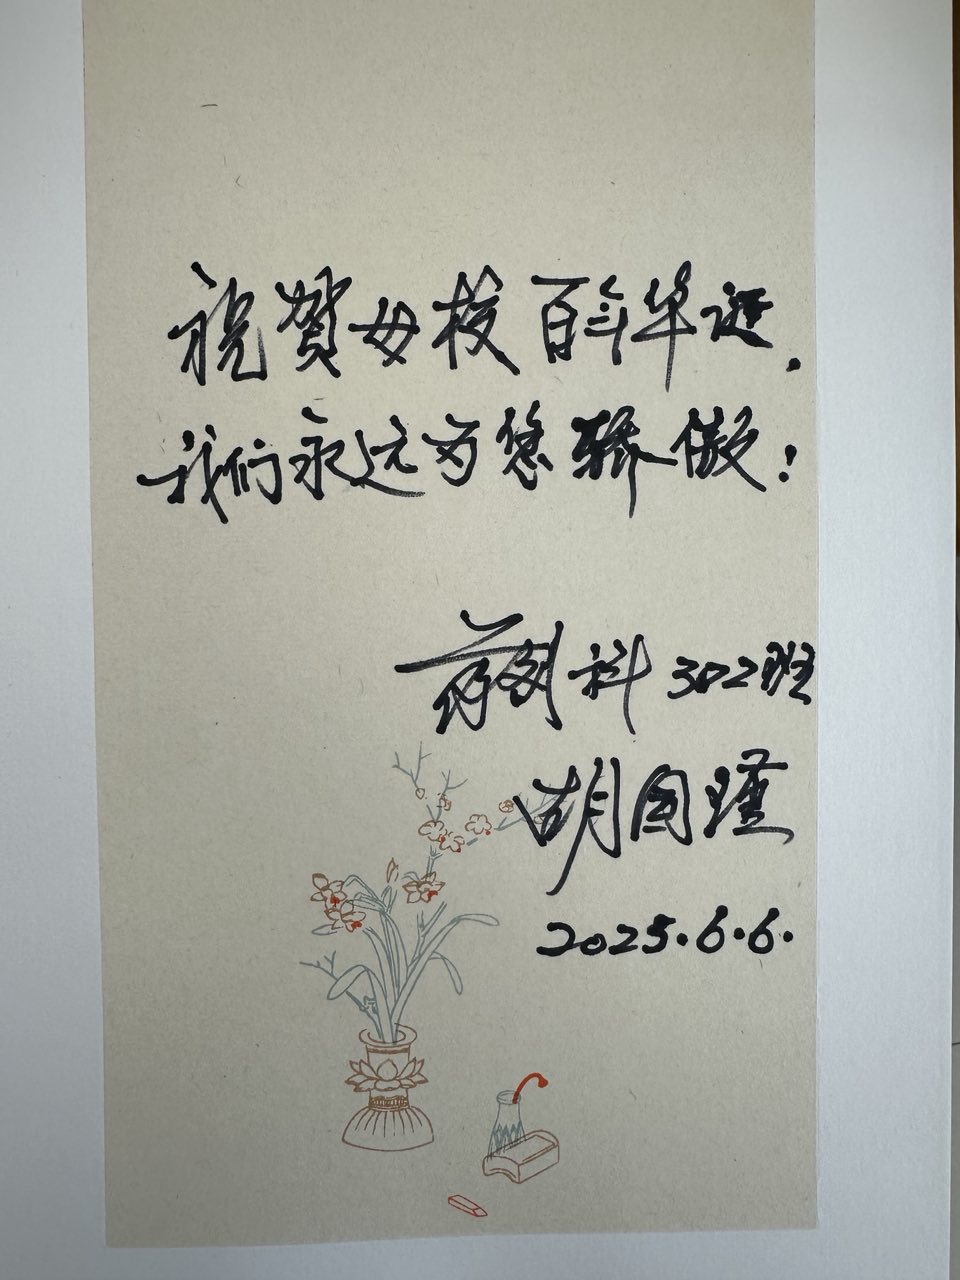 祝贺母校百年华诞.
我们永远为您骄傲!
药剂科302班
胡国瑾
2025.6.6.